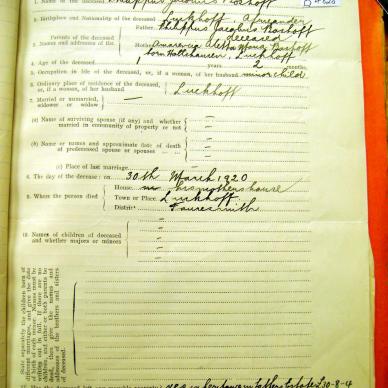 1. Name of the deceased
2. Birthplace and Nationality of the deceased Luckhoff. Afrikander
3. Names and addresses of the Parents of the deceased
Father Philippus Jacobus Boshoff
deceased
Mother Boshoff
born Luckhoff
4. Age of the deceased 1 years 2 months.
5. Occupation in life of the deceased, or, if a woman, of her husband minor child
6. Ordinary place of residence of the deceased, or, if a woman, of her husband Luckhoff
7. Married or unmarried, widower or widow —
(a) Name of surviving spouse (if any) and whether married in community of property or not —
(b) Name or names and approximate date of death of predeceased spouse or spouses —
(c) Place of last marriage —
8. The day of the decease: on 30th March 1920
9. Where the person died
House his mothers house
Town or Place Luckhoff
District Fauresmith
10. Names of children of deceased and whether majors or minors
—
State separately the children born of different marriages, and give the date of birth of each minor. Names must be written out in full. If there are no children, and either or both parents be dead, then give the names and addresses of the brothers and sisters of deceased.
30-8-4